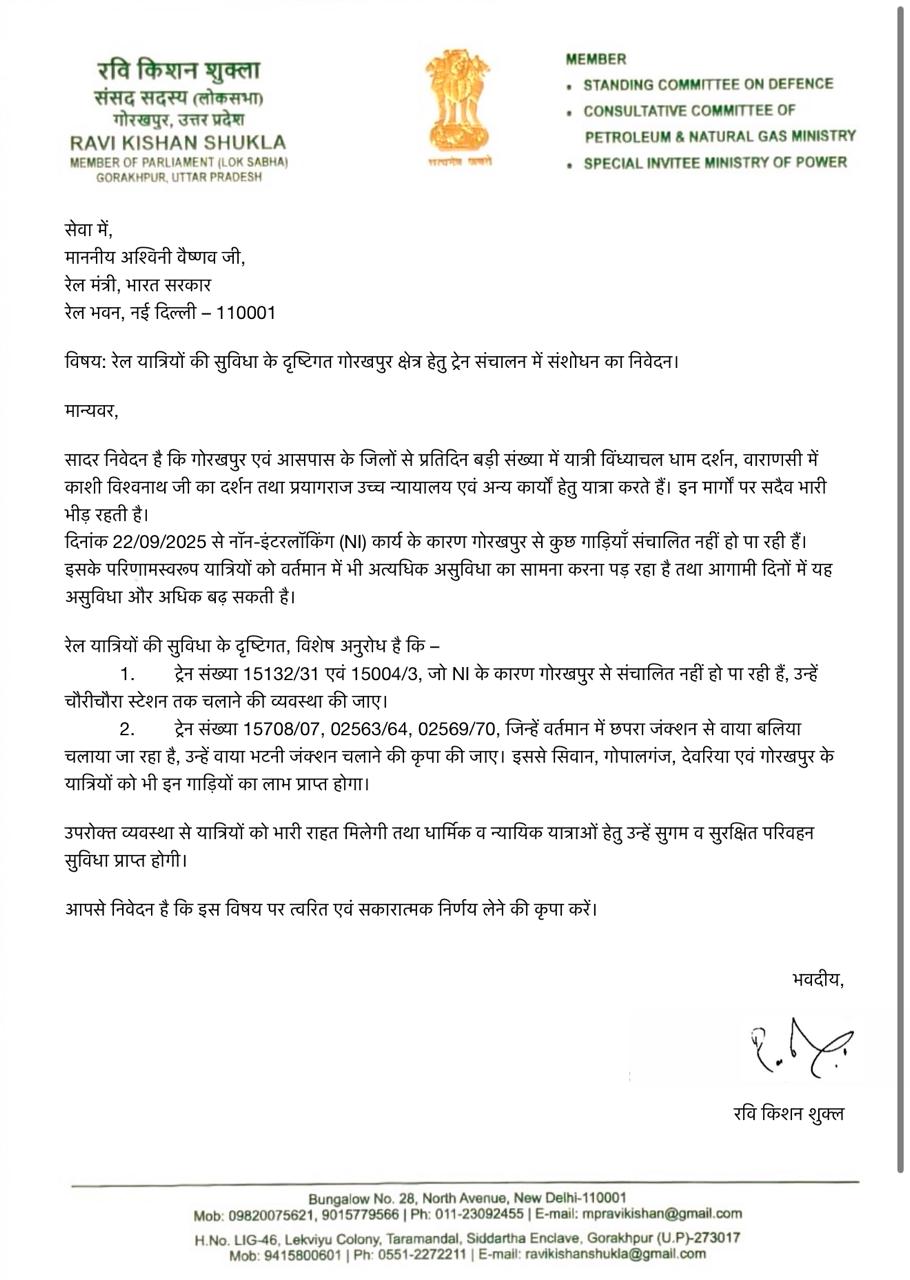 रवि किशन शुक्ला
संसद सदस्य (लोकसभा)
गोरखपुर, उत्तर प्रदेश
RAVI KISHAN SHUKLA
MEMBER OF PARLIAMENT (LOK SABHA)
GORAKHPUR, UTTAR PRADESH
सत्यमेव जयते
MEMBER
• STANDING COMMITTEE ON DEFENCE
• CONSULTATIVE COMMITTEE OF
PETROLEUM & NATURAL GAS MINISTRY
• SPECIAL INVITEE MINISTRY OF POWER
सेवा में,
माननीय अश्विनी वैष्णव जी,
रेल मंत्री, भारत सरकार
रेल भवन, नई दिल्ली – 110001
विषय: रेल यात्रियों की सुविधा के दृष्टिगत गोरखपुर क्षेत्र हेतु ट्रेन संचालन में संशोधन का निवेदन।
मान्यवर,
सादर निवेदन है कि गोरखपुर एवं आसपास के जिलों से प्रतिदिन बड़ी संख्या में यात्री विंध्याचल धाम दर्शन, वाराणसी में
काशी विश्वनाथ जी का दर्शन तथा प्रयागराज उच्च न्यायालय एवं अन्य कार्यों हेतु यात्रा करते हैं। इन मार्गों पर सदैव भारी
भीड़ रहती है।
दिनांक 22/09/2025 से नॉन-इंटरलॉकिंग (NI) कार्य के कारण गोरखपुर से कुछ गाड़ियाँ संचालित नहीं हो पा रही हैं।
इसके परिणामस्वरूप यात्रियों को वर्तमान में भी अत्यधिक असुविधा का सामना करना पड़ रहा है तथा आगामी दिनों में यह
असुविधा और अधिक बढ़ सकती है।
रेल यात्रियों की सुविधा के दृष्टिगत, विशेष अनुरोध है कि –
1. ट्रेन संख्या 15132/31 एवं 15004/3, जो NI के कारण गोरखपुर से संचालित नहीं हो पा रही हैं, उन्हें
चौरीचौरा स्टेशन तक चलाने की व्यवस्था की जाए।
2. ट्रेन संख्या 15708/07, 02563/64, 02569/70, जिन्हें वर्तमान में छपरा जंक्शन से वाया बलिया
चलाया जा रहा है, उन्हें वाया भटनी जंक्शन चलाने की कृपा की जाए। इससे सिवान, गोपालगंज, देवरिया एवं गोरखपुर के
यात्रियों को भी इन गाड़ियों का लाभ प्राप्त होगा।
उपरोक्त व्यवस्था से यात्रियों को भारी राहत मिलेगी तथा धार्मिक व न्यायिक यात्राओं हेतु उन्हें सुगम व सुरक्षित परिवहन
सुविधा प्राप्त होगी।
आपसे निवेदन है कि इस विषय पर त्वरित एवं सकारात्मक निर्णय लेने की कृपा करें।
भवदीय,
रवि किशन शुक्ल
Bungalow No. 28, North Avenue, New Delhi-110001
Mob: 09820075621, 9015779566 | Ph: 011-23092455 | E-mail: mpravikishan@gmail.com
H.No. LIG-46, Lekviyu Colony, Taramandal, Siddartha Enclave, Gorakhpur (U.P)-273017
Mob: 9415800601 | Ph: 0551-2272211 | E-mail: ravikishanshukla@gmail.com